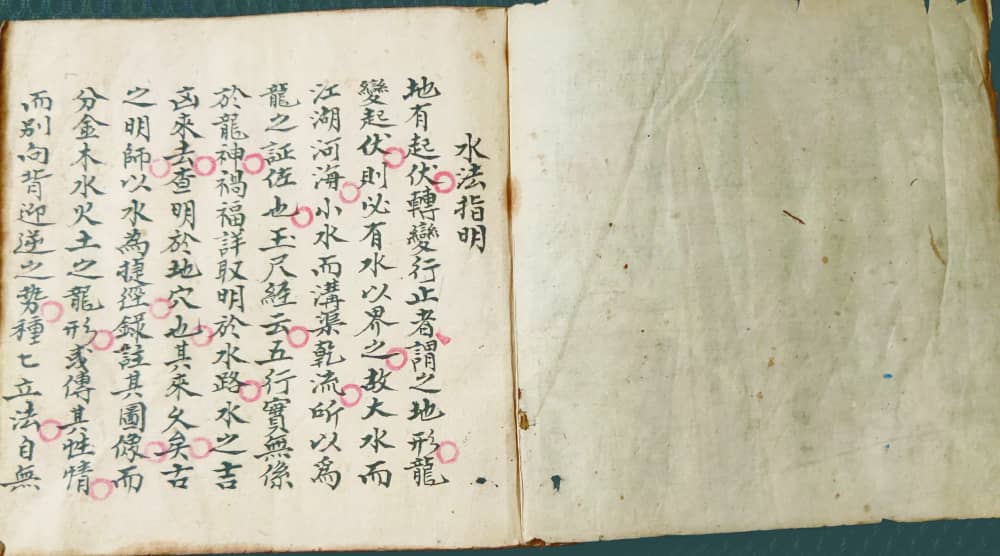 水法指明
地有起伏轉變行止者謂之地形龍
變起伏則必有水以界之故大水而
江湖河海小水而溝渠乾流所以為
龍之証佐也玉尺經云五行實無係
於龍神禍福詳取明於水路水之吉
凶來去查明於地穴也其來久矣古
之明師以水為捷徑錄註其圖像而
分金木水火土之龍形或傳其性情
而别向背迎逆之勢種七立法自無